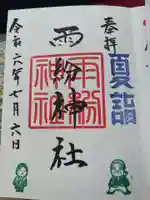 奉拝
夏詣
雨紛神社
雨紛神社
令和六年七月六日